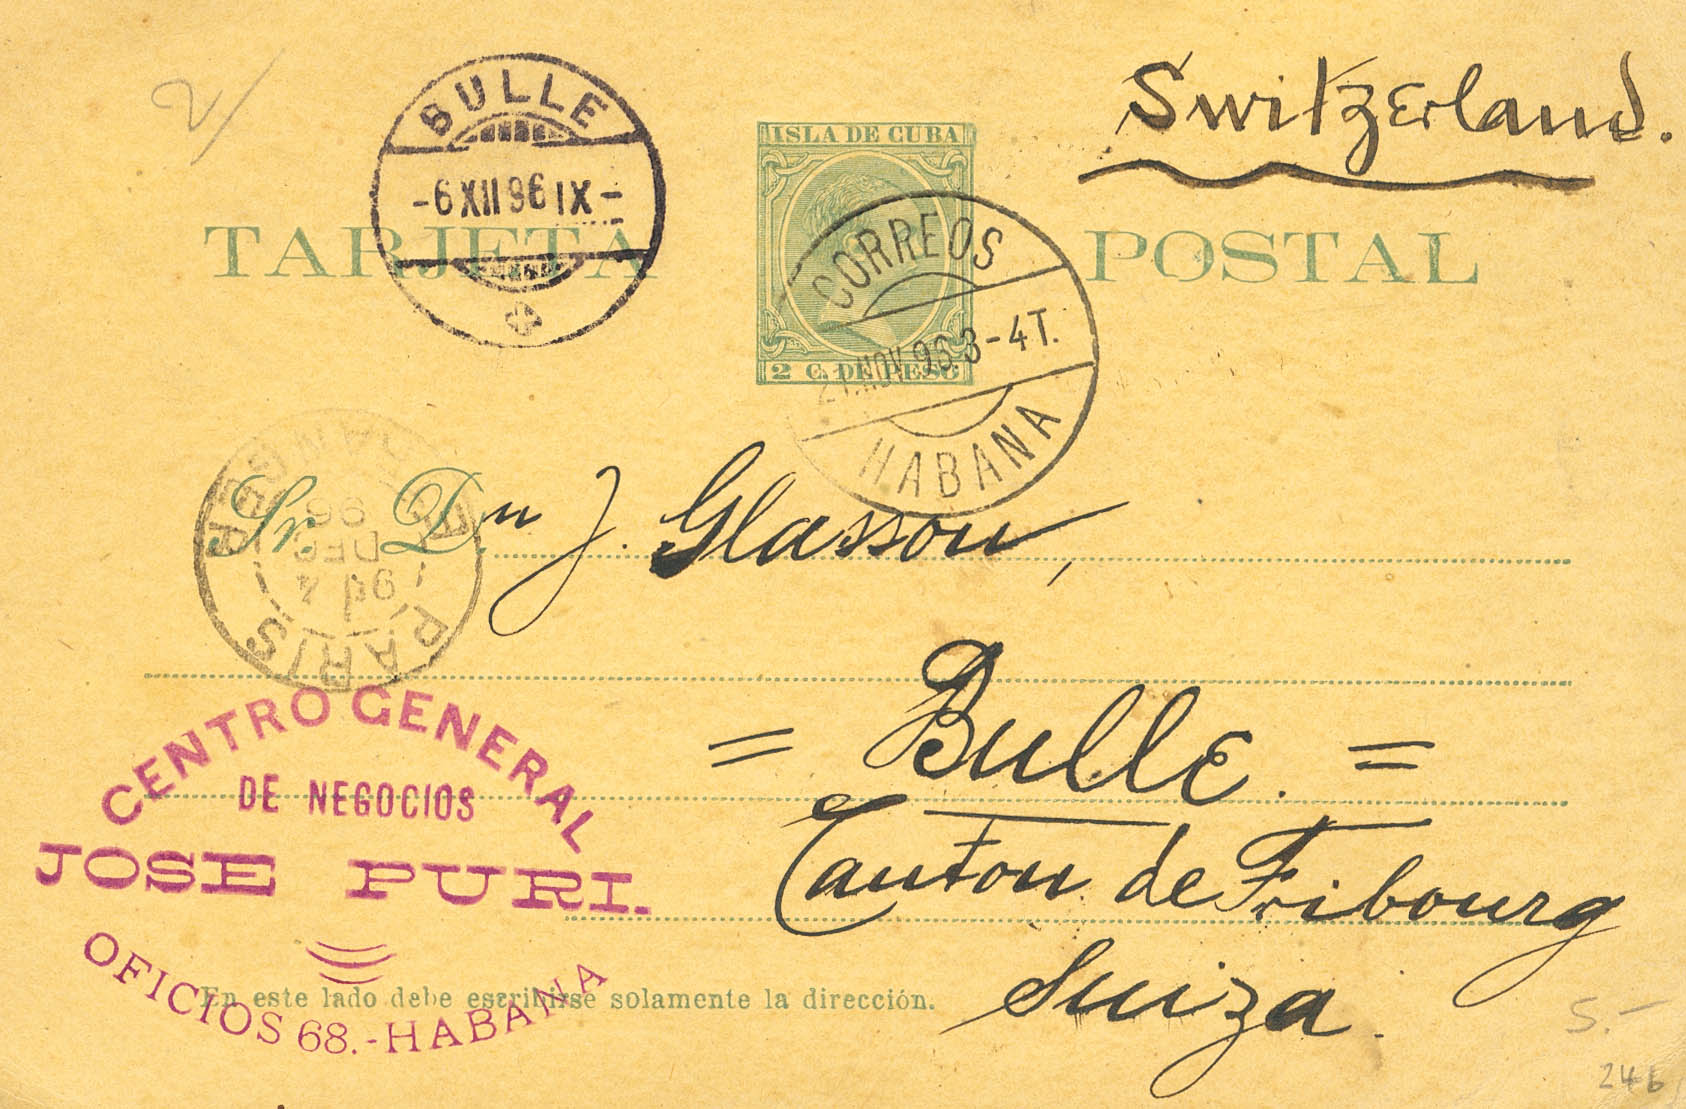 Switzerland.
BULLE
-6 XII 96 IX-
ISLA DE CUBA
TARJETA POSTAL
CORREOS
NOV. 96. 3-4T.
HABANA
2 C. DE PESO
Sr. Dn J. Glasson,
PARIS
4 DEC 96
= Bulle. =
CENTRO GENERAL
DE NEGOCIOS
JOSE PURI.
OFICIOS 68.-HABANA
Canton de Fribourg
Suiza.
En este lado debe escribirse solamente la dirección.
5.-
246